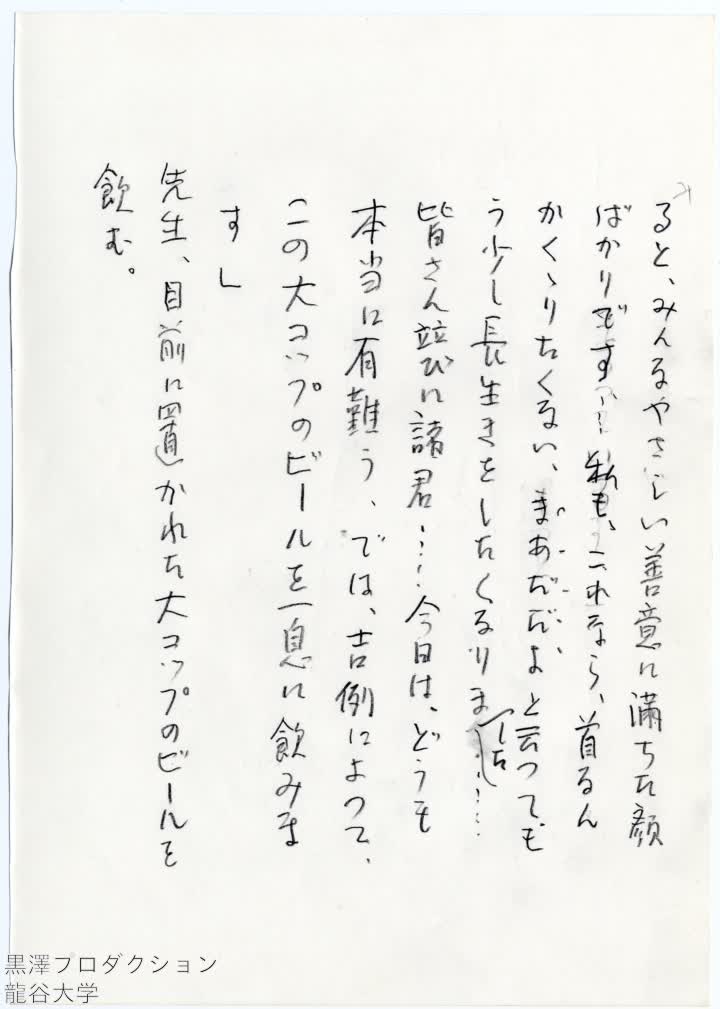 みると、みんなやさしい善意に満ちた顔
ばかりです……私も、これなら、首なん
かくゝりたくない、まあだだよと云つて、も
う少し長生きをしたくなりました……
皆さん並びに諸君……今日は、どうも
本当に有難う、では、吉例によつて、
この大コップのビールを一息に飲みま
す」
先生、目前に置かれた大コップのビールを
飲む。
黒澤プロダクション
龍谷大学